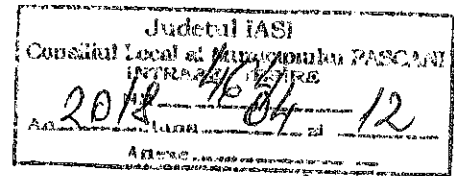 Judetul IASI
Consiliul Local al Municipiului PASCANI
INTRARE IESIRE
Nr.
An 2018 Luna 04 zi 12
Anexe